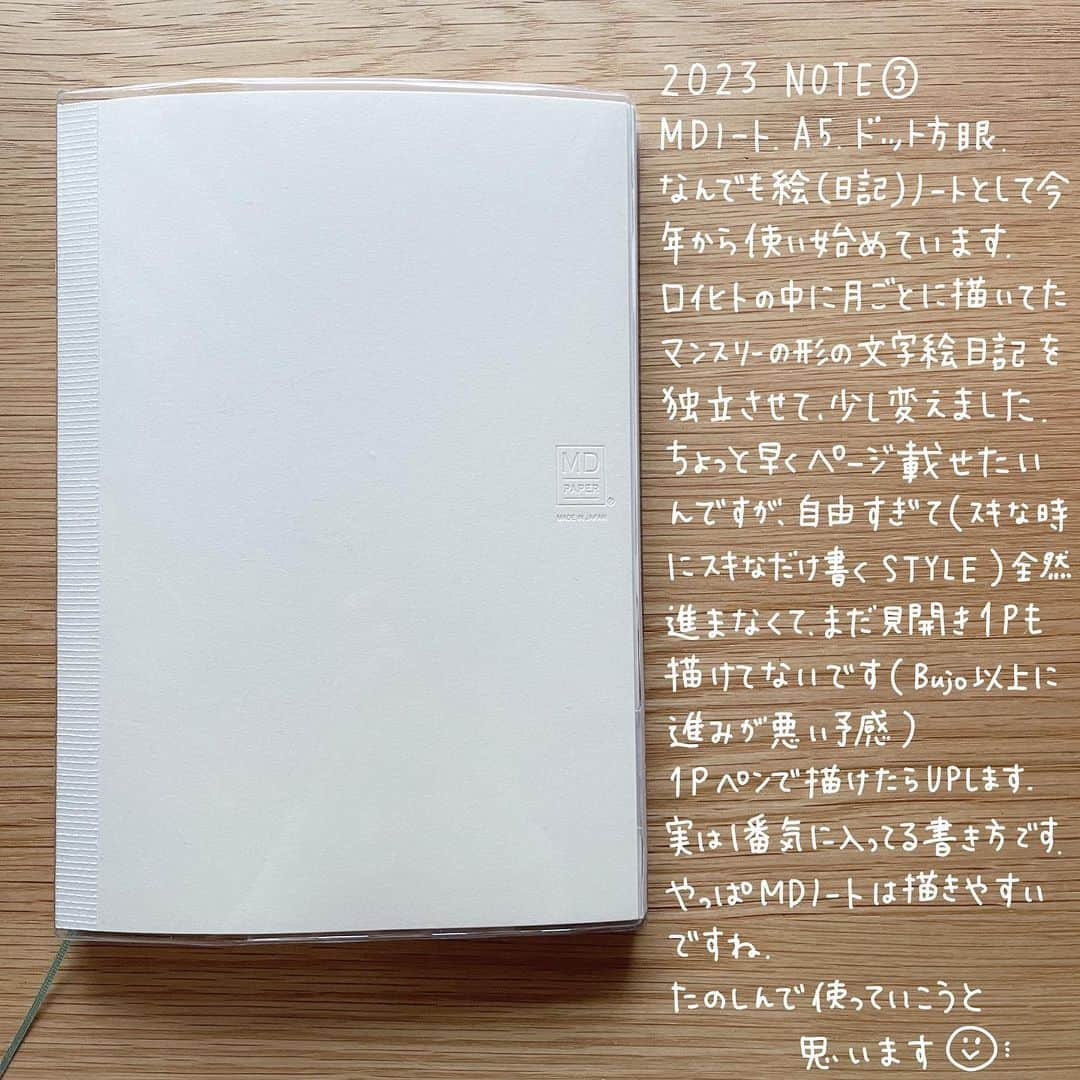 2023 NOTE③
MDノート. A5. ドット方眼.
なんでも絵(日記)ノートとして今
年から使い始めています.
ロイヒトの中に月ごとに描いてた
マンスリーの形の文字絵日記を
独立させて、少し変えました.
ちょっと早くページ載せたい
んですが、自由すぎて(スキな時
にスキなだけ書くSTYLE)全然
進まなくて、まだ見開き1Pも
描けてないです(Bujo以上に
進みが悪い予感)
1Pペンで描けたらUPします.
実は1番気に入ってる書き方です.
やっぱMDノートは描きやすい
ですね.
たのしんで使っていこうと
思います
MD
PAPER
®
MADE IN JAPAN